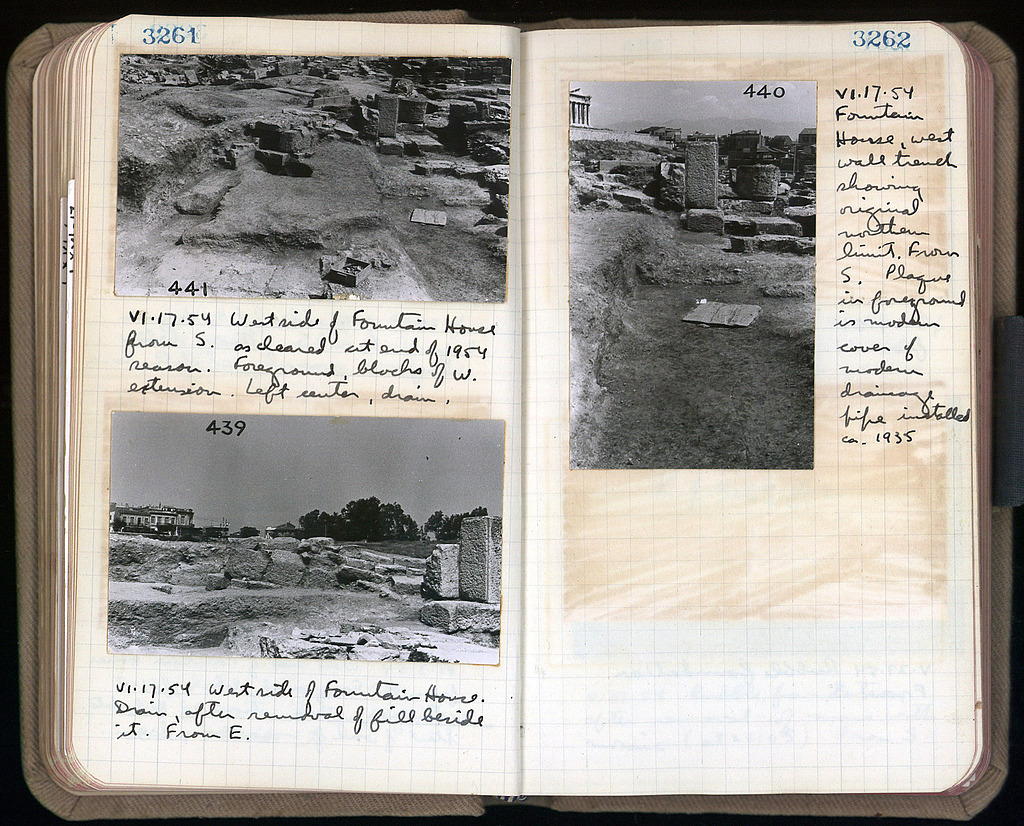 3261
441
VI.17.54 West side of Fountain House
from S. as cleared at end of 1954
season. Foreground, blocks of W.
extension. Left center, drain.
439
VI.17.54 West side of Fountain House.
Drain, after removal of fill beside
it. From E.
3262
440
VI.17.54
Fountain
House, west
wall trench
showing
original
northern
limit. From
S. Plaque
in foreground
is modern
cover of
modern
drainage
pipe installed
ca. 1935